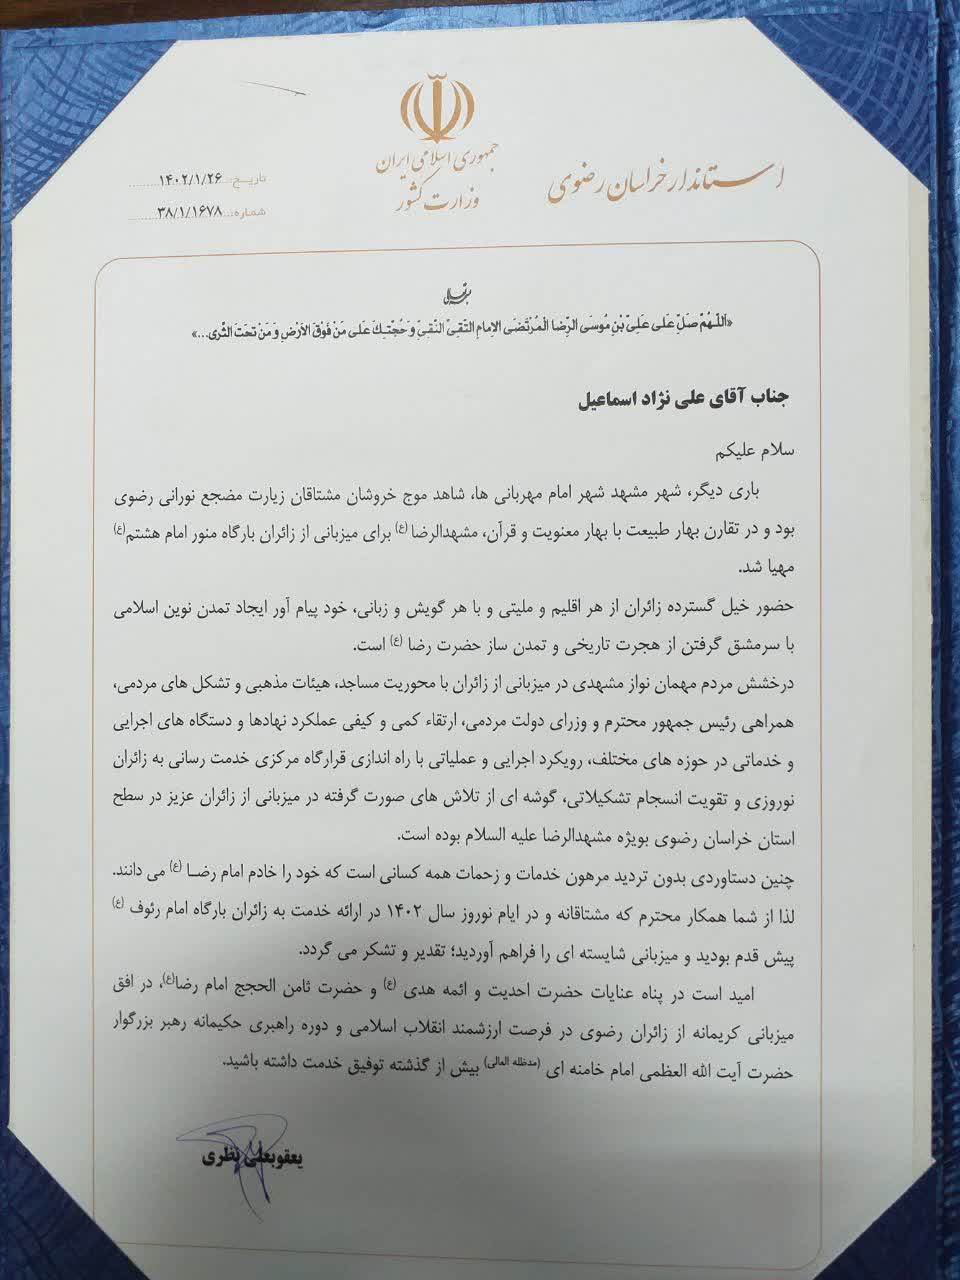 جمهوری اسلامی ایران
وزارت کشور
استاندار خراسان رضوی
تاریخ: ۱۴۰۲/۱/۲۶
شماره: ۳۸/۱/۱۶۷۸
«اَللّهُمَّ صَلِّ عَلی عَلِیِّ بْنِ مُوسَی الرِّضا الْمُرْتَضَی الاِمامِ التَّقِیِّ النَّقِیِّ وَ حُجَّتِکَ عَلی مَنْ فَوْقَ الاَرْضِ وَ مَنْ تَحْتَ الثَّری...»
جناب آقای علی نژاد اسماعیل
سلام علیکم
باری دیگر، شهر مشهد شهر امام مهربانی ها، شاهد موج خروشان مشتاقان زیارت مضجع نورانی رضوی
بود و در تقارن بهار طبیعت با بهار معنویت و قرآن، مشهدالرضا (ع) برای میزبانی از زائران بارگاه منور امام هشتم(ع)
مهیا شد.
حضور خیل گسترده زائران از هر اقلیم و ملیتی و با هر گویش و زبانی، خود پیام آور ایجاد تمدن نوین اسلامی
با سرمشق گرفتن از هجرت تاریخی و تمدن ساز حضرت رضا (ع) است.
درخشش مردم مهمان نواز مشهدی در میزبانی از زائران با محوریت مساجد، هیئات مذهبی و تشکل های مردمی،
همراهی رئیس جمهور محترم و وزرای دولت مردمی، ارتقاء کمی و کیفی عملکرد نهادها و دستگاه های اجرایی
و خدماتی در حوزه های مختلف، رویکرد اجرایی و عملیاتی با راه اندازی قرارگاه مرکزی خدمت رسانی به زائران
نوروزی و تقویت انسجام تشکیلاتی، گوشه ای از تلاش های صورت گرفته در میزبانی از زائران عزیز در سطح
استان خراسان رضوی بویژه مشهدالرضا علیه السلام بوده است.
چنین دستاوردی بدون تردید مرهون خدمات و زحمات همه کسانی است که خود را خادم امام رضا (ع) می دانند.
لذا از شما همکار محترم که مشتاقانه و در ایام نوروز سال ۱۴۰۲ در ارائه خدمت به زائران بارگاه امام رئوف (ع)
پیش قدم بودید و میزبانی شایسته ای را فراهم آوردید؛ تقدیر و تشکر می گردد.
امید است در پناه عنایات حضرت احدیت و ائمه هدی (ع) و حضرت ثامن الحجج امام رضا(ع)، در افق
میزبانی کریمانه از زائران رضوی در فرصت ارزشمند انقلاب اسلامی و دوره راهبری حکیمانه رهبر بزرگوار
حضرت آیت الله العظمی امام خامنه ای (مدظله العالی) بیش از گذشته توفیق خدمت داشته باشید.
یعقوبعلی نظری